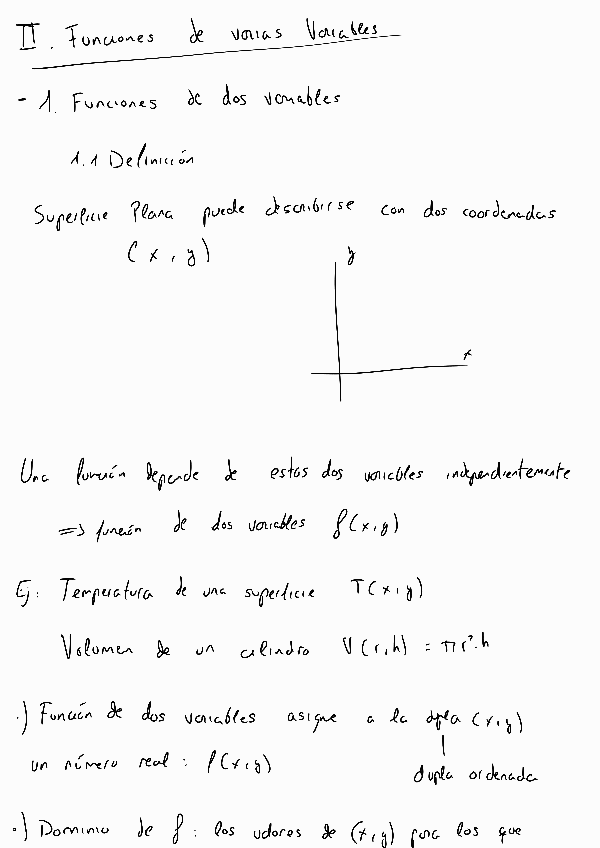 II. Funciones de varias Variables
- 1. Funciones de dos variables
1.1 Definición
Superficie Plana puede describirse con dos coordenadas
(x, y)
y
x
Una función depende de estas dos variables independientemente
=> función de dos variables f(x,y)
Ej: Temperatura de una superficie T(x,y)
Volumen de un cilindro V(r,h) = πr².h
.) Función de dos variables asigna a la dpla (x,y)
un número real: f(x,y)
dupla ordenada
.) Dominio de f: los valores de (x,y) para los que